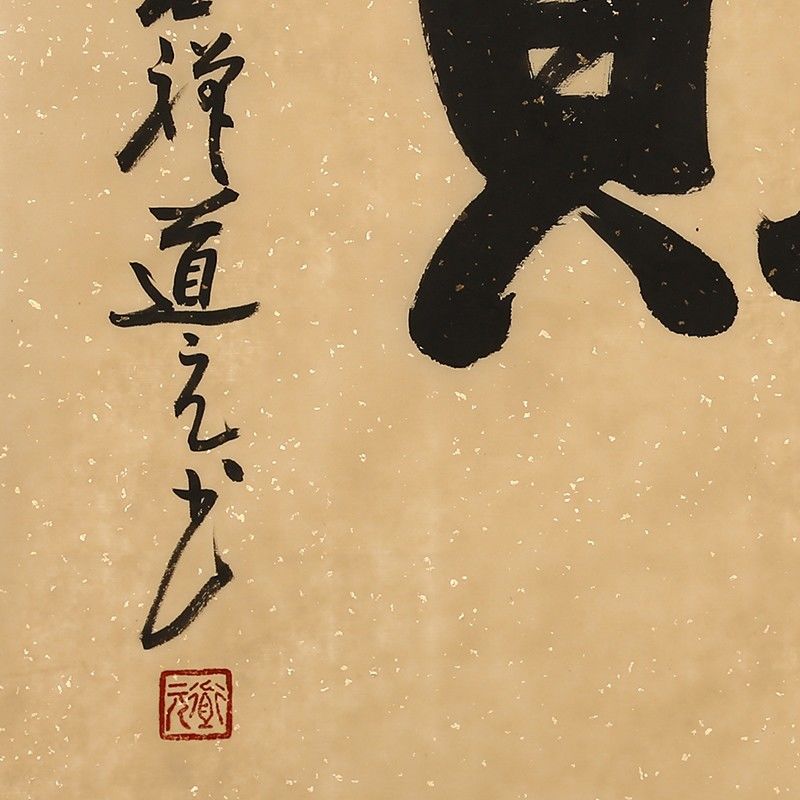 禅道元书
道元